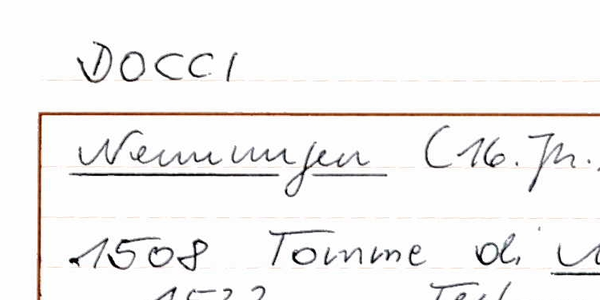 DOCCI
Nennungen (16. Jh.
1508 Tomme di
1522